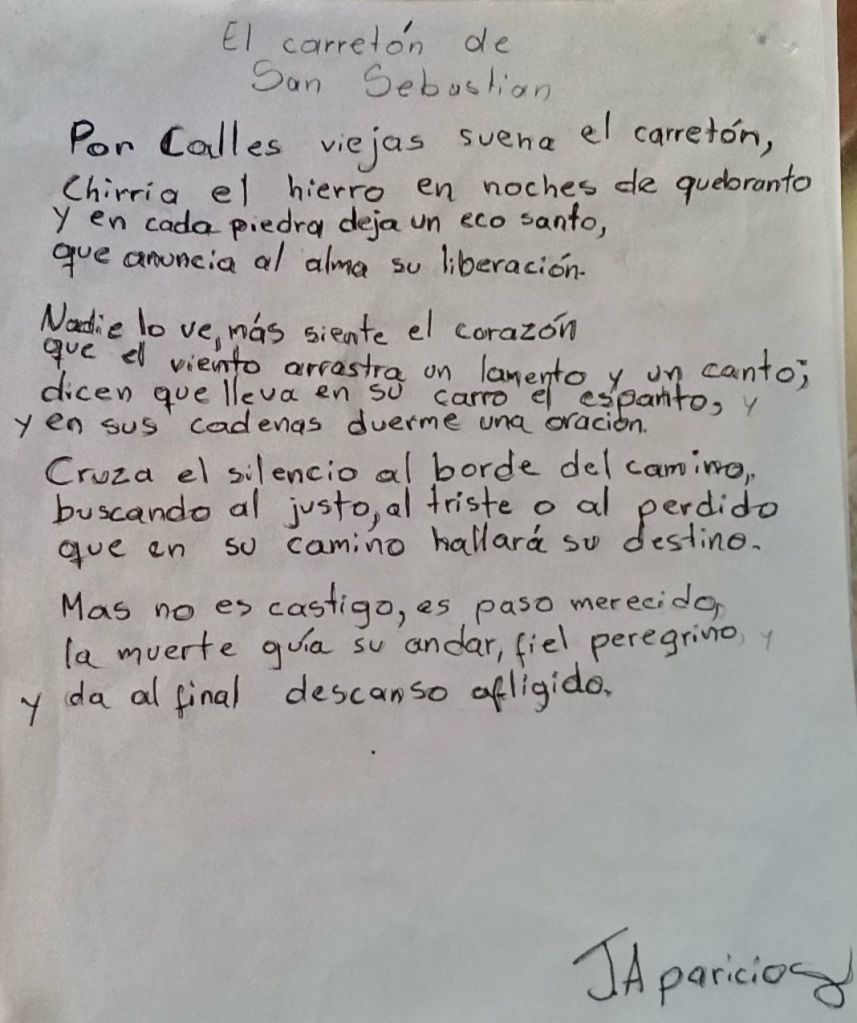 El carretón de
San Sebastian
Por Calles viejas suena el carretón,
Chirria el hierro en noches de quebranto
y en cada piedra deja un eco santo,
que anuncia al alma su liberación.
Nadie lo ve, más siente el corazón
que el viento arrastra un lamento y un canto;
dicen que lleva en su carro el espanto, y
y en sus cadenas duerme una oración.
Cruza el silencio al borde del camino,
buscando al justo, al triste o al perdido
que en su camino hallará su destino.
Mas no es castigo, es paso merecido,
la muerte guía su andar, fiel peregrino, y
y da al final descanso afligido.
JAparicio